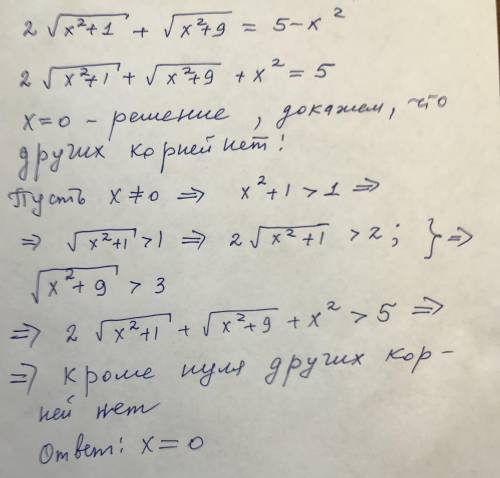 2√(x²+1) + √(x²+9) = 5 – x²
2√(x²+1) + √(x²+9) + x² = 5
x=0 – решение, докажем, что
других корней нет!
Пусть x≠0 ⇒ x²+1 > 1 ⇒
⇒ √(x²+1) > 1 ⇒ 2√(x²+1) > 2; } ⇒
√(x²+9) > 3
⇒ 2√(x²+1) + √(x²+9) + x² > 5 ⇒
⇒ кроме нуля других кор-
ней нет
Ответ: x=0